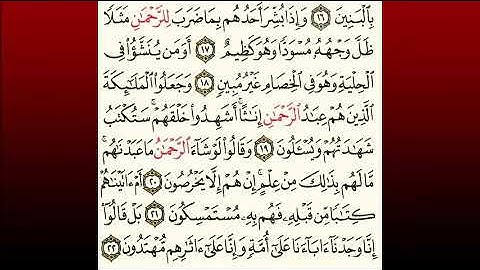 بِٱلۡبَنِينَ ١٦ وَإِذَا بُشِّرَ أَحَدُهُم بِمَا ضَرَبَ لِلرَّحۡمَٰنِ مَثَلٗا
ظَلَّ وَجۡهُهُۥ مُسۡوَدّٗا وَهُوَ كَظِيمٌ ١٧ أَوَمَن يُنَشَّؤُاْ فِي
ٱلۡحِلۡيَةِ وَهُوَ فِي ٱلۡخِصَامِ غَيۡرُ مُبِينٖ ١٨ وَجَعَلُواْ ٱلۡمَلَٰٓئِكَةَ
ٱلَّذِينَ هُمۡ عِبَٰدُ ٱلرَّحۡمَٰنِ إِنَٰثًاۚ أَشَهِدُواْ خَلۡقَهُمۡۚ سَتُكۡتَبُ
شَهَٰدَتُهُمۡ وَيُسۡـَٔلُونَ ١٩ وَقَالُواْ لَوۡ شَآءَ ٱلرَّحۡمَٰنُ مَا عَبَدۡنَٰهُمۗ
مَّا لَهُم بِذَٰلِكَ مِنۡ عِلۡمٍۖ إِنۡ هُمۡ إِلَّا يَخۡرُصُونَ ٢٠ أَمۡ ءَاتَيۡنَٰهُمۡ
كِتَٰبٗا مِّن قَبۡلِهِۦ فَهُم بِهِۦ مُسۡتَمۡسِكُونَ ٢١ بَلۡ قَالُوٓاْ
إِنَّا وَجَدۡنَآ ءَابَآءَنَا عَلَىٰٓ أُمَّةٖ وَإِنَّا عَلَىٰٓ ءَاثَٰرِهِم مُّهۡتَدُونَ ٢٢